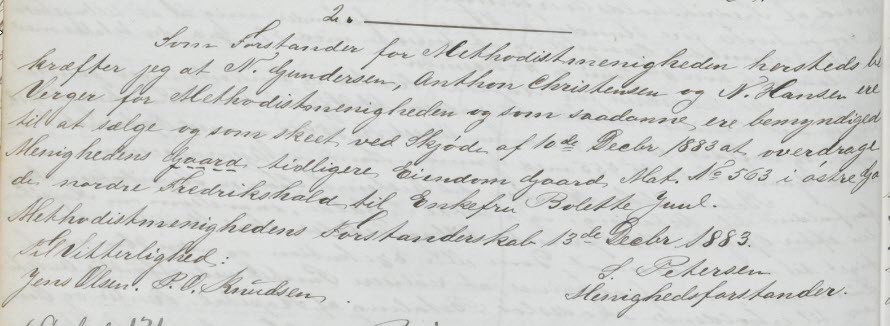 2.
Som Forstander for Methodistmenigheden hersteds be
kræfter jeg at N. Gundersen, Anthon Christensen og N. Hansen ere
Verger for Methodistmenigheden og som saadanne ere bemyndiged
til at sælge og som skeet ved Skjøde af 10de Decbr 1883 at overdrage
Menighedens Gaard tidligere Eiendom Gaard Mat. No 563 i østre Ga
de nordre Fredrikshald til Enkefru Bolette Juul.
Methodistmenighedens Forstanderskab 13de Decbr 1883.
Til Vitterlighed:
S. Petersen
Jens Olsen. P. O. Knudsen.
Menighedsforstander.